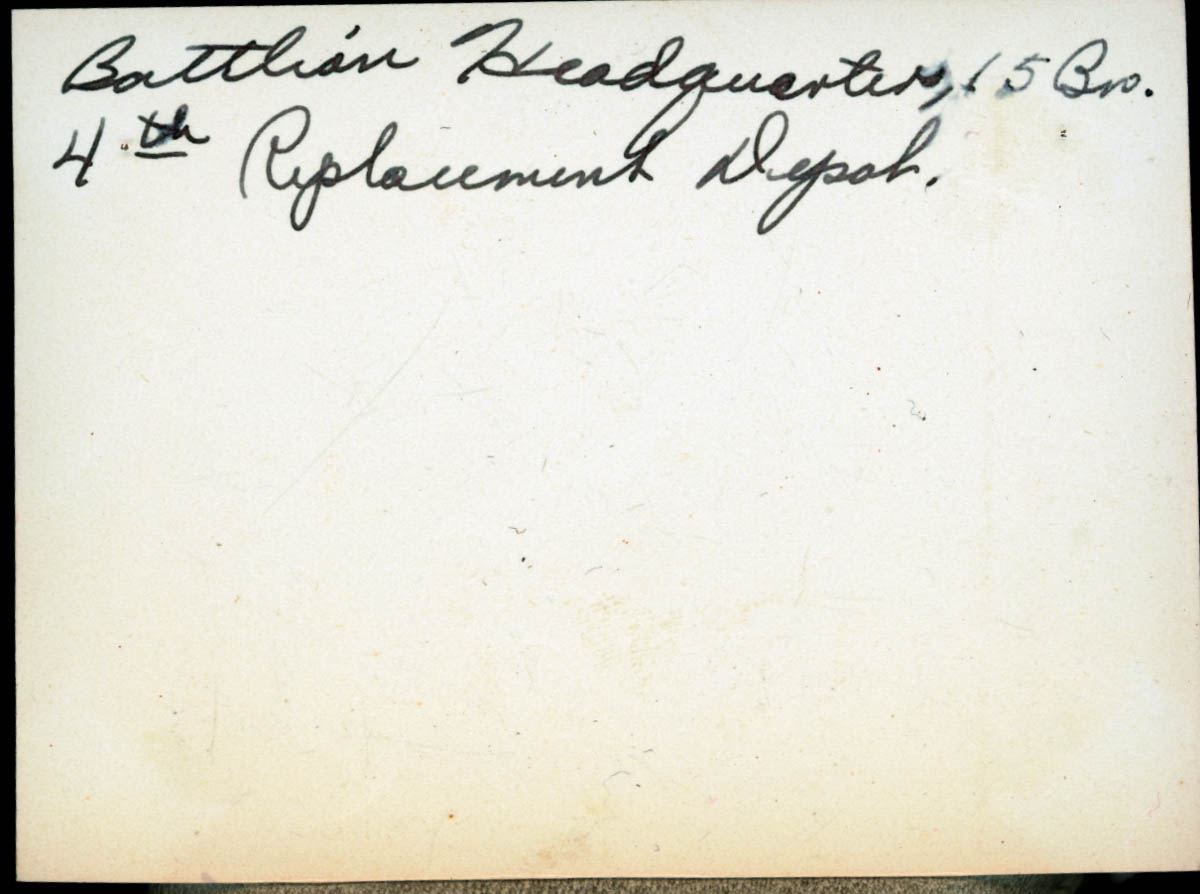 Battlion Headquarters, 15 Bn.
4th Replacement Depot.